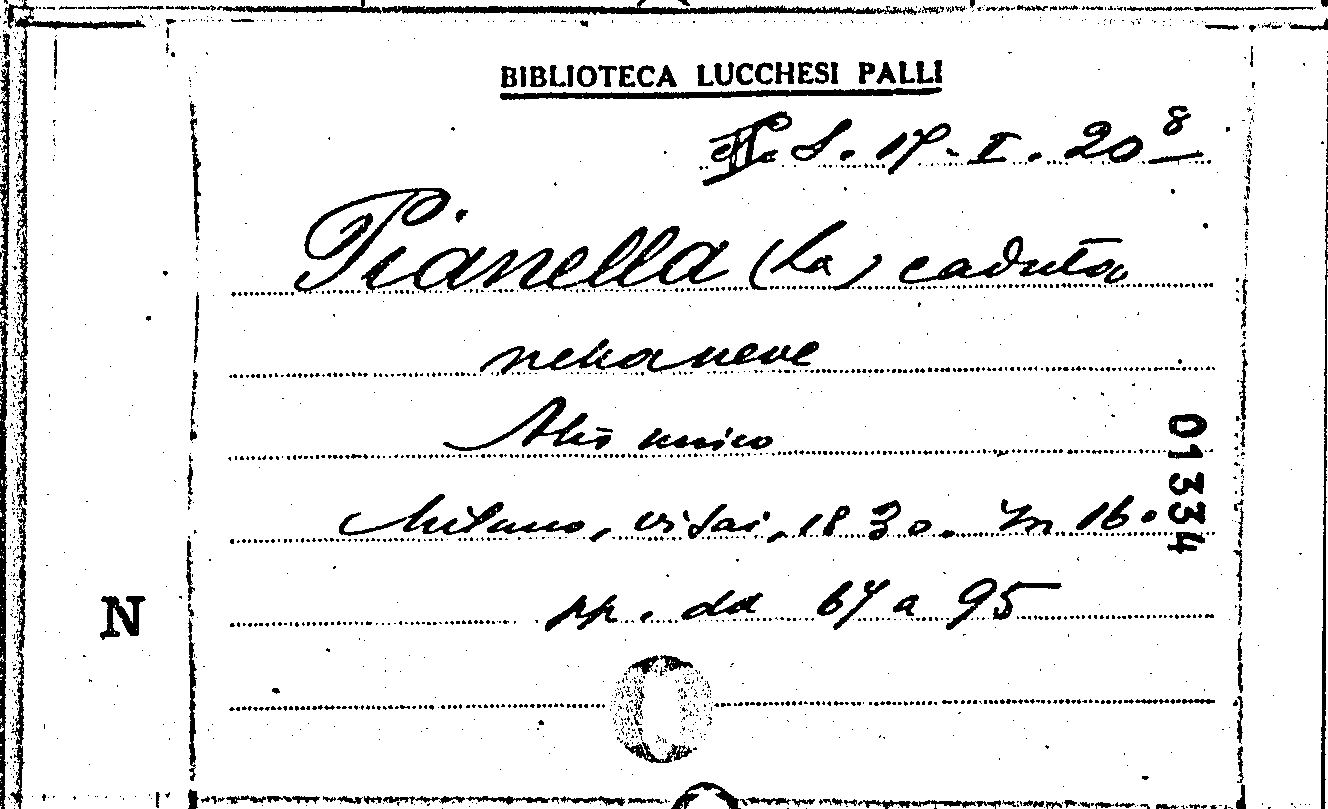 BIBLIOTECA LUCCHESI PALLI
S. 17. I. 20 8
Pianella (La) caduta
nella neve
Atto unico
Milano, visai, 1830. In 16.
pp. da 67 a 95
01334
N